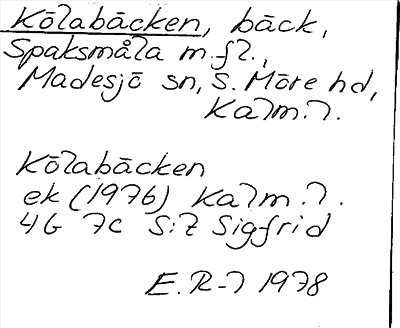 Kölabäcken, bäck,
Spaksmåla m.fl.,
Madesjö sn, S. Möre hd,
Kalm.l.
Kölabäcken
ek (1976) Kalm.l.
4G 7c S:t Sigfrid
E.R-l 1978